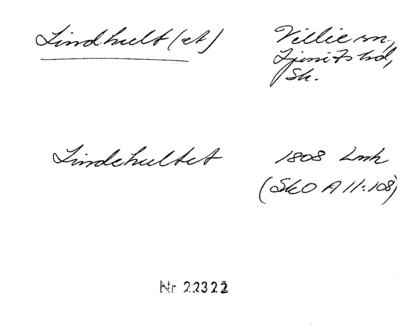 Lindhult (et) Villie sn,
Ljunits hd,
Sk.
Lindehultet 1808 Lmh
(SkO A 11:108)
Nr 22322